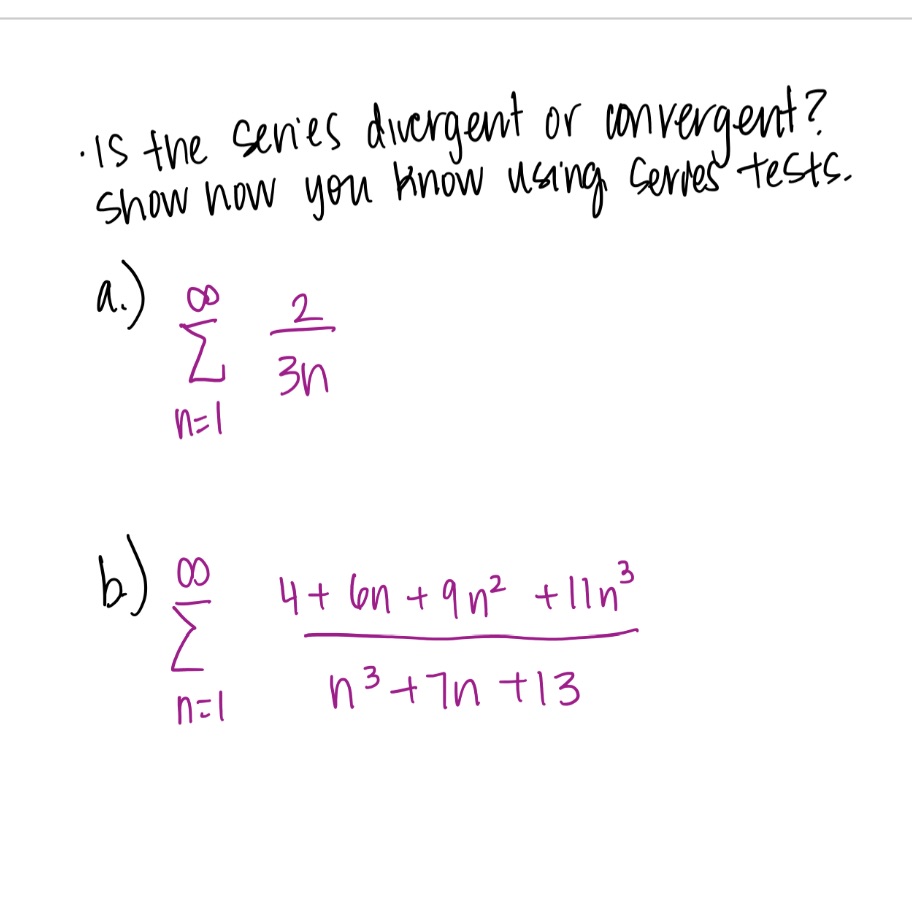 · Is the series divergent or convergent?
Show how you know using series tests.
a.) ∞
∑ 2/3n
n=1
b.) ∞
∑ 4 + 6n + 9n² + 11n³ / n³ + 7n + 13
n=1